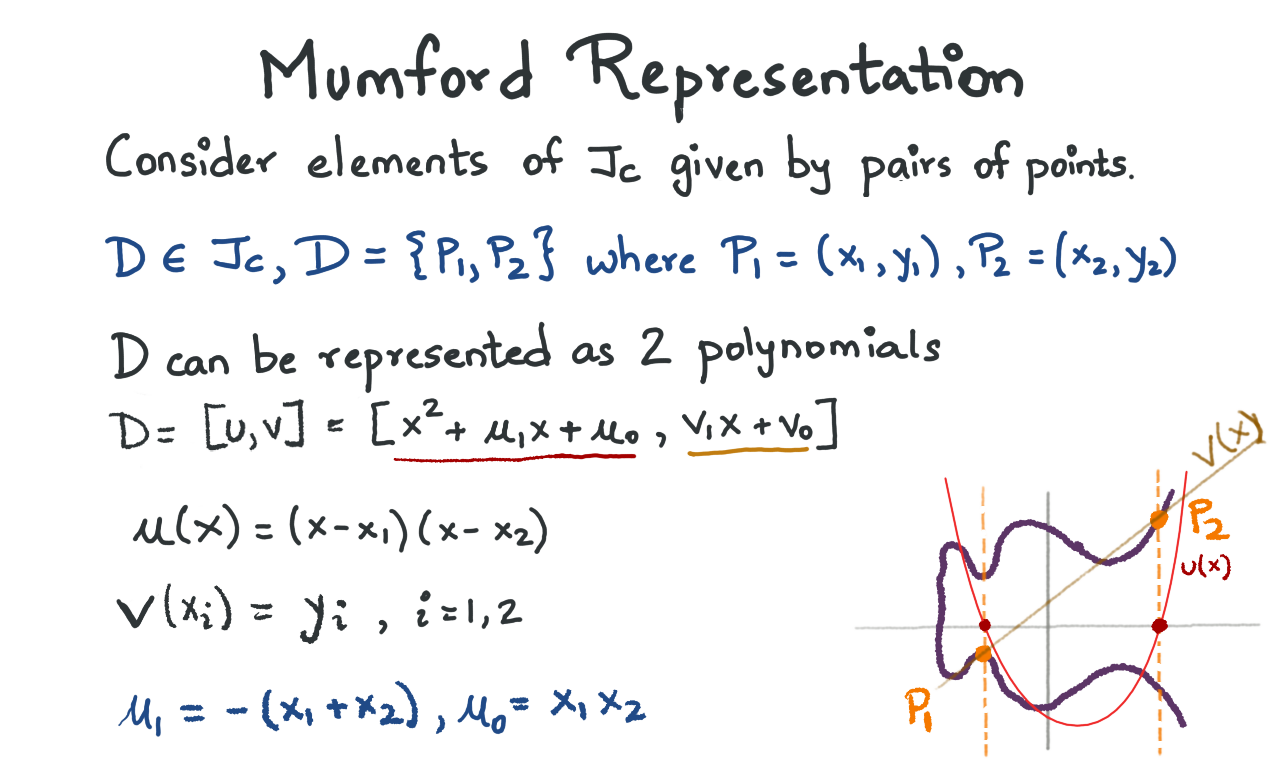 Mumford Representation
Consider elements of J_C given by pairs of points.
D ∈ J_C, D = {P₁, P₂} where P₁ = (x₁, y₁), P₂ = (x₂, y₂)
D can be represented as 2 polynomials
D = [u, v] = [x² + u₁x + u₀, v₁x + v₀]
u(x) = (x-x₁)(x-x₂)
v(xᵢ) = yᵢ, i=1,2
u₁ = -(x₁+x₂), u₀ = x₁x₂
v(x)
P₂
u(x)
P₁